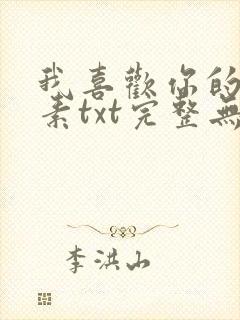 我喜歡你的
素txt完整無
李洪山